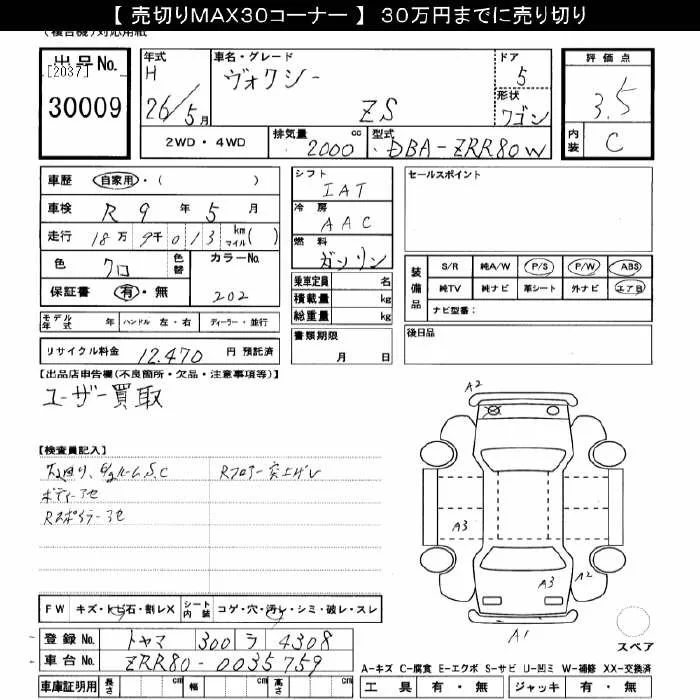 【 売切りMAX30コーナー 】 30万円までに売り切り
(複合機)対応用紙
出品No.
[2037]
30009
年式
H
26/5月
車名・グレード
ヴォクシー
ZS
ドア
5
形状
ワゴン
2WD・4WD
排気量
2000 cc
型式
DBA-ZRR80W
評価点
3.5
内装
C
車歴 自家用・( )
車検 R 9年 5月
走行 18万 9千 013 km マイル( )
色 クロ 色替 カラーNo. 202
保証書 有・無
モデル年式 年 ハンドル 左・右 ディーラー・並行
リサイクル料金 12,470 円 預託済
シフト
IAT
冷房
AAC
燃料
ガソリン
乗車定員 名
積載量 kg
総重量 kg
書類期限
月 日
セールスポイント
装備品
S/R 純A/W P/S P/W ABS
純TV 純ナビ 革シート 外ナビ エアB
ナビ型番:
後日品
【出品店申告欄(不良箇所・欠品・注意事項等)】
ユーザー買取
【検査員記入】
ルームS.C
Rフロアー突上ゲレ
ボディーアセ
Rスポイラーアセ
A2
A3
A3
A2
A1
スペア
FW キズ・トビ石・割レX シート内装 コゲ・穴・汚レ・シミ・破レ・スレ
登録No. トヤマ 300 ラ 4308
車台No. ZRR80-0035759
車庫証明用 長さ cm 幅 cm 高さ cm
A-キズ C-腐食 E-エクボ S-サビ U-凹ミ W-補修 XX-交換済
工具 有・無 ジャッキ 有・無